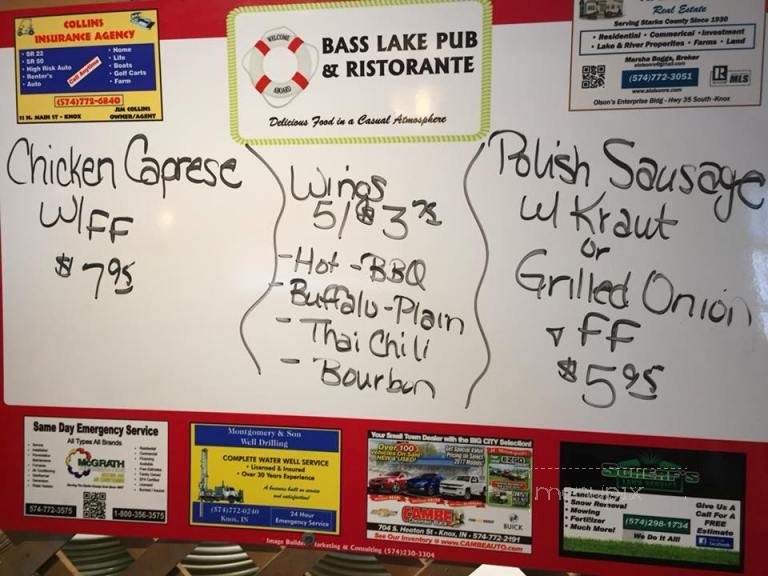 COLLINS
INSURANCE AGENCY
• SR 22
• SR 50
• High Risk Auto
• Renter's
• Auto
Call Anytime
• Home
• Life
• Boats
• Golf Carts
• Farm
(574)772-6840
11 N. MAIN ST - KNOX
JIM COLLINS
OWNER/AGENT
WELCOME
ABOARD
BASS LAKE PUB
& RISTORANTE
Delicious Food in a Casual Atmosphere
Real Estate
Serving Starke County Since 1930
• Residential • Commerical • Investment
• Lake & River Properites • Farms • Land
Marsha Boggs, Broker
(574)772-3051
MLS
Olson's Enterprise Bldg - Hwy 35 South - Knox
Chicken Caprese
W/FF
$7.95
Wings
5/$3.75
- Hot - BBQ
- Buffalo - Plain
- Thai Chili
- Bourbon
Polish Sausage
w/ Kraut
or
Grilled Onion
FF
$5.95
Same Day Emergency Service
All Types All Brands
McGRATH
574-772-3575
1-800-356-3575
Montgomery & Son
Well Drilling
COMPLETE WATER WELL SERVICE
• Licensed & Insured
• Over 30 Years Experience
A business built on service
and satisfaction!
(574)772-0240
KNOX, IN
24 Hour
Emergency Service
Your Small Town Dealer with the BIG CITY Selection!
Over 100
Vehicles On Sale
NEW & USED!
Get Special Value
Pricing on Select
2017 Models!
CAMBE
BUICK
704 S. Heaton St • Knox, IN • 574-772-2191
See Our Inventory @ www.CAMBEAUTO.com
• Landscaping
• Snow Removal
• Mowing
• Fertilizer
• Much More!
(574)298-1734
We Do It All!
Give Us A
Call For A
FREE
Estimate
facebook
Marketing & Consulting (574)230-3304